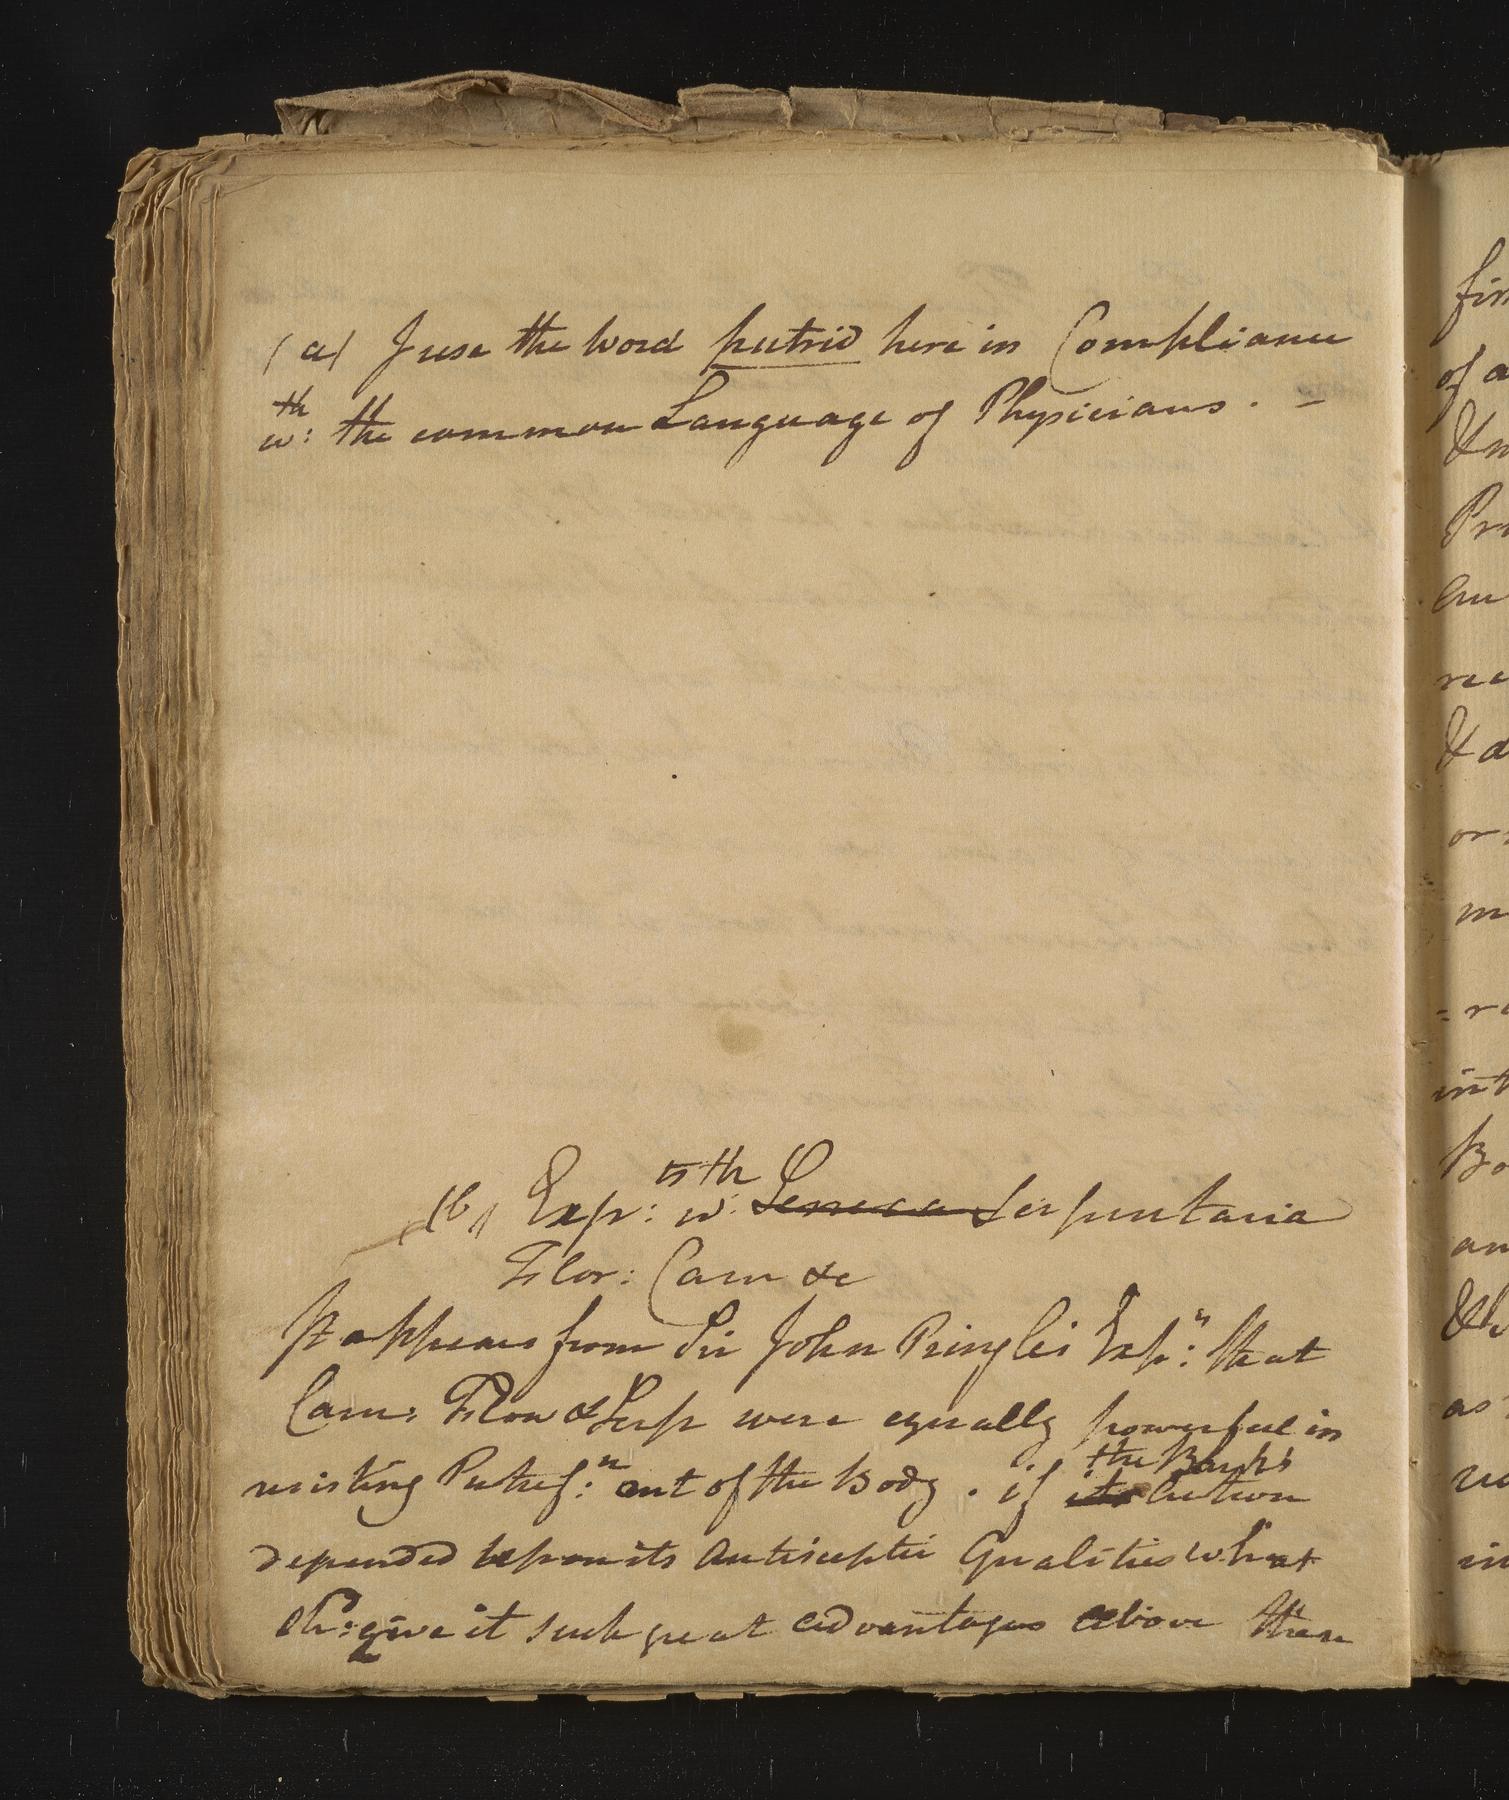 (a) I use the word putrid here in Compliance
w:th the common Language of Physicians. –
(b) Exp: w:th Seneca Serpentaria
Flor: Cam &c
It appears from Sir John Pringles Exp:s that
Cam: Flow & Serp were equally powerful in
resisting Putref:n out of the Body. if its the Bark's Action
depended upon its Antiseptic Qualities what
sh:d give it such great advantages above these
fir
of a
& n
Pr
re
& d
or
m
= r
int
Bo
an
as
in